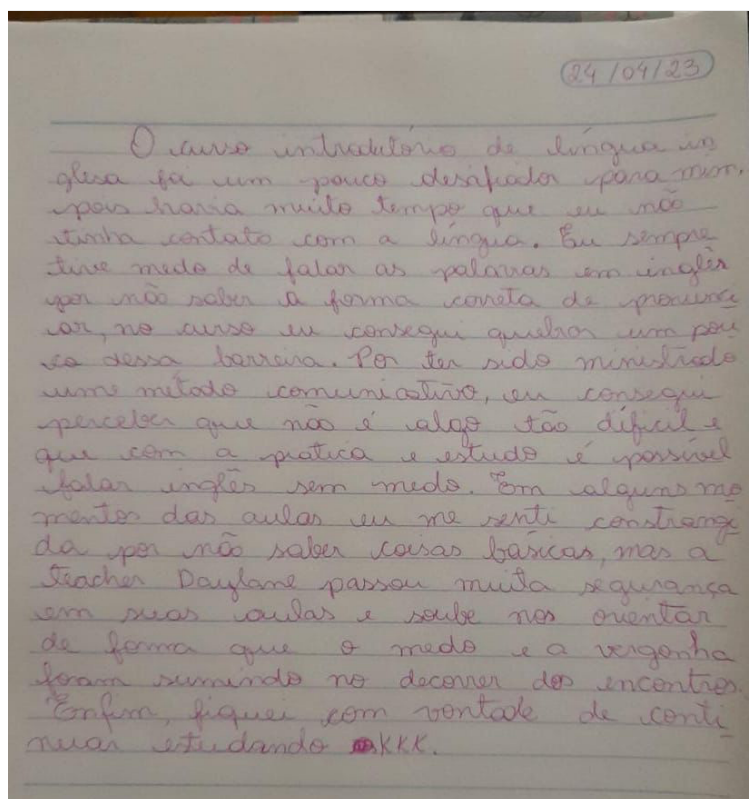 24/04/23
O curso introdutório de língua in
glesa foi um pouco desafiador para mim,
pois havia muito tempo que eu não
tinha contato com a língua. Eu sempre
tive medo de falar as palavras em inglês
por não saber a forma correta de pronunci
ar, no curso eu consegui quebrar um pou
co dessa barreira. Por ter sido ministrado
ume método comunicativo, eu consegui
perceber que não é algo tão dificil e
que com a pratica e estudo é possível
falar inglês sem medo. Em alguns mo
mentos das aulas eu me senti constrangi
da por não saber coisas básicas, mas a
teacher Daylane passou muita segurança
em suas aulas e soube nos orientar
de forma que o medo e a vergonha
foram sumindo no decorrer dos encontros.
Enfim, fiquei com vontade de conti
nuar estudando KKK.